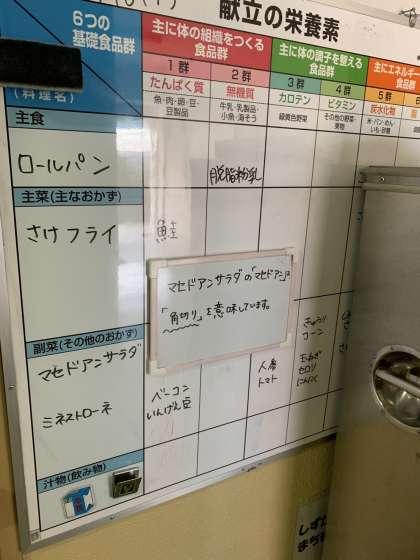 献立の栄養素
6つの
基礎食品群
(料理名)
主に体の組織をつくる
食品群
主に体の調子を整える
食品群
主にエネルギー
1群
2群
3群
4群
5群
たんぱく質
無機質
カロテン
ビタミン
炭水化物
魚・肉・卵・豆・
豆製品
牛乳・乳製品・
小魚・海そう
緑黄色野菜
その他の野菜・
果物
米・パン・めん・
いも・砂糖
主食
ロールパン
脱脂粉乳
主菜(主なおかず)
さけフライ
鮭
マセドアンサラダの「マセドアン」は
「角切り」を意味しています。
副菜(その他のおかず)
マセドアンサラダ
きゅうり
コーン
ミネストローネ
ベーコン
いんげん豆
人参
トマト
玉ねぎ
セロリ
にんにく
汁物(飲み物)